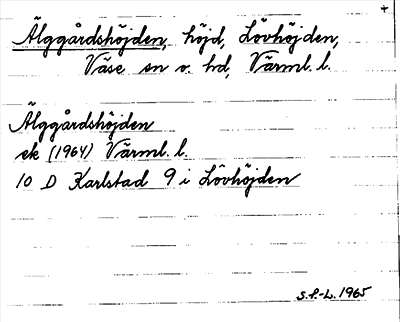 +
Älggårdshöjden, höjd, Lövhöjden,
Väse sn o. hd, Värml. l.
Älggårdshöjden
ek (1964) Värml. l.
10 D Karlstad 9 i Lövhöjden
S.P.-L. 1965